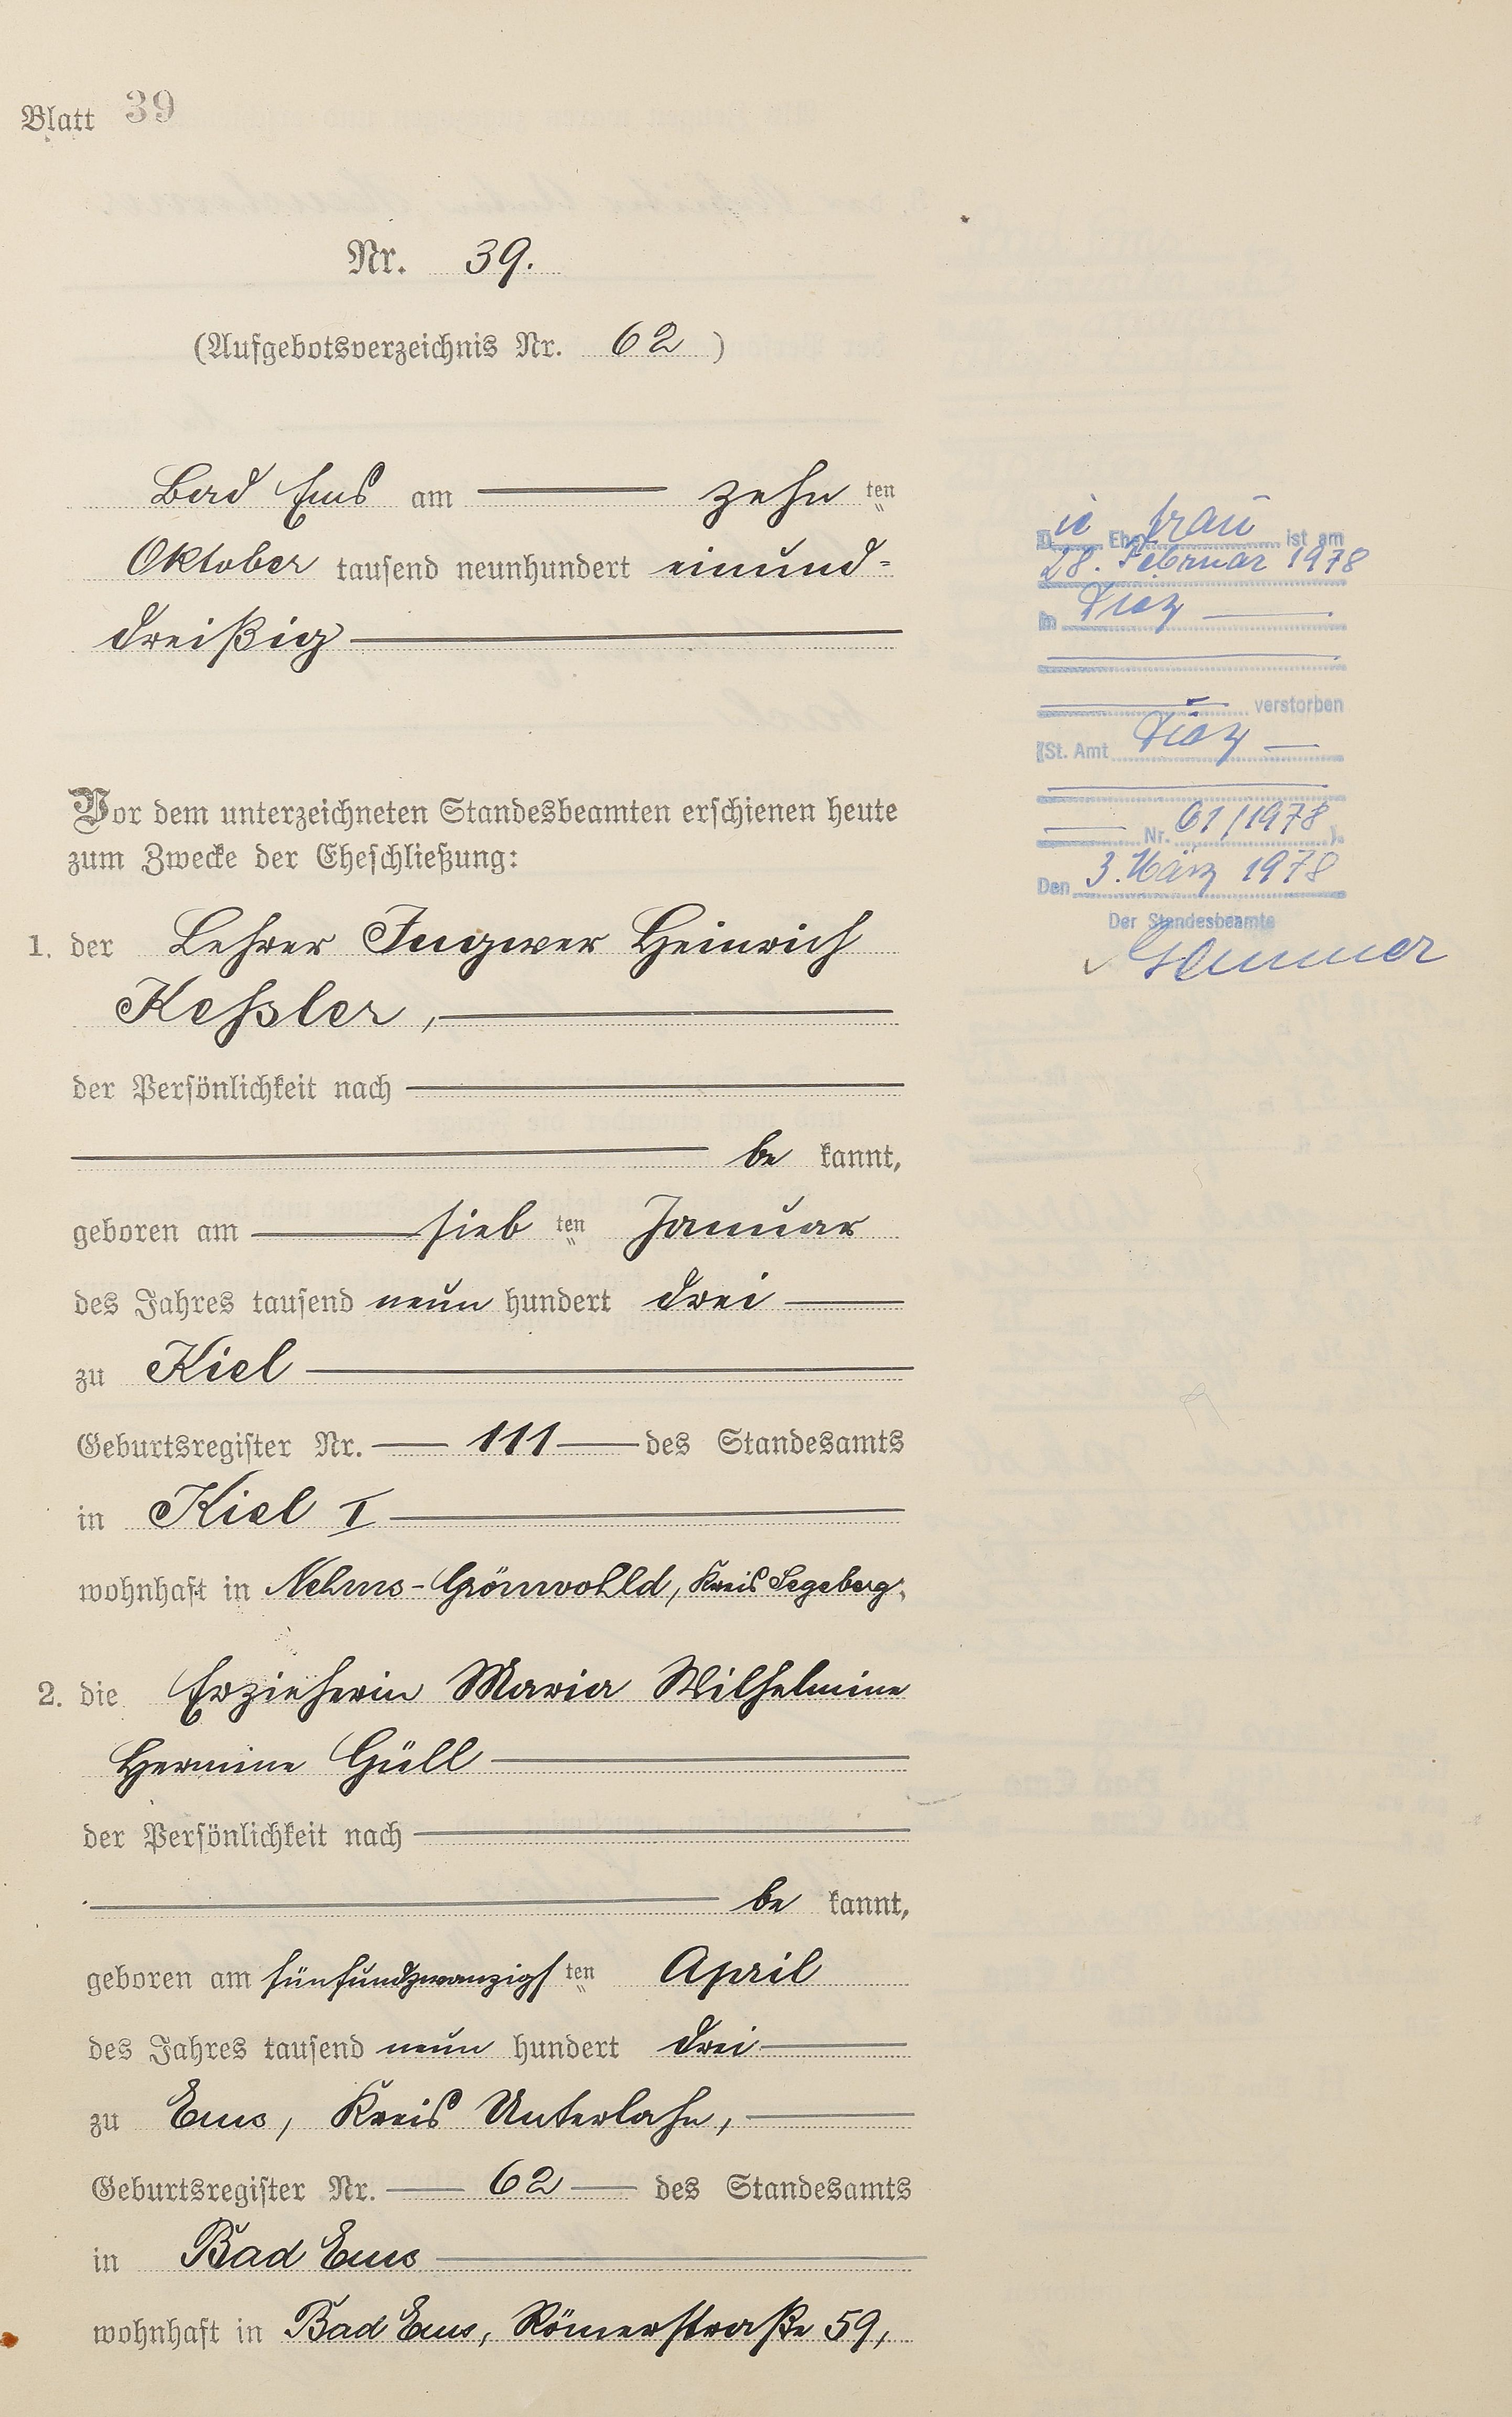 Blatt 39
Nr. 39.
(Aufgebotsverzeichnis Nr. 62)
Bad Ems am zehn ten
Oktober tausend neunhundert einund-
dreißig
Vor dem unterzeichneten Standesbeamten erschienen heute
zum Zwecke der Eheschließung:
1. der Lehrer Ingwer Heinrich
Keßler,
der Persönlichkeit nach
be kannt,
geboren am sieb ten Januar
des Jahres tausend neun hundert drei
zu Kiel
Geburtsregister Nr. 111 des Standesamts
in Kiel I
wohnhaft in Nehms-Grönwohld, Kreis Segeberg,
2. die Erzieherin Maria Wilhelmine
Hermine Güll
der Persönlichkeit nach
be kannt,
geboren am fünfundzwanzigs ten April
des Jahres tausend neun hundert drei
zu Ems, Kreis Unterlahn,
Geburtsregister Nr. 62 des Standesamts
in Bad Ems
wohnhaft in Bad Ems, Römerstraße 59,
Die Ehefrau ist am
28. Februar 1978
in Diez
verstorben
(St. Amt Diez
Nr. 61/1978).
Den 3. März 1978
Der Standesbeamte